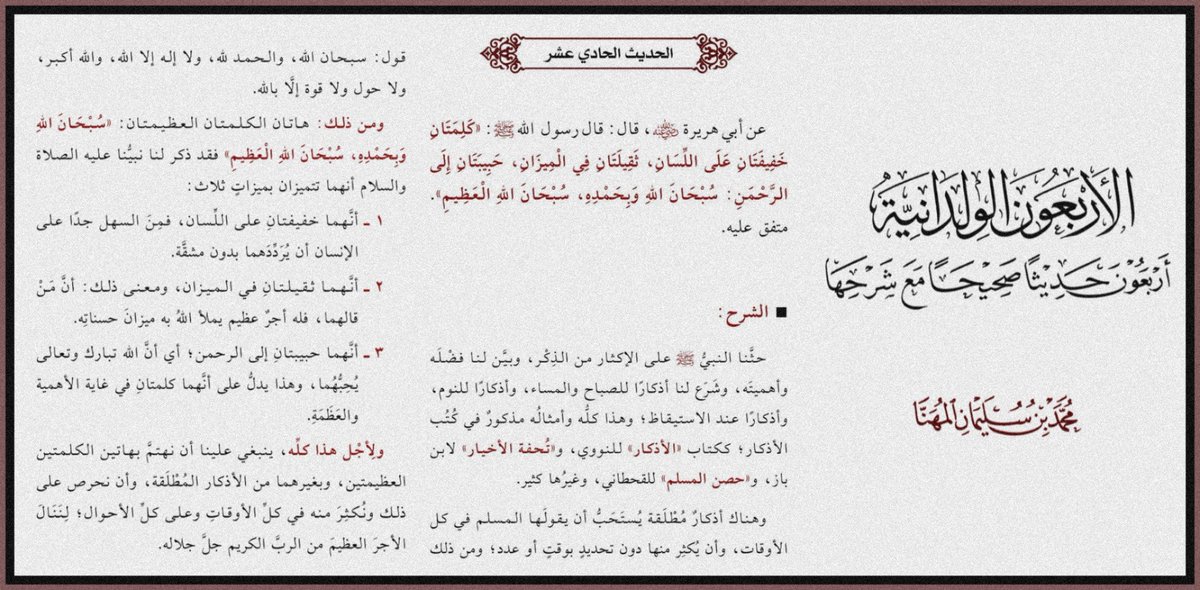 الأَرْبَعُونَ الوِلْدَانِيَّةُ
أَرْبَعُونَ حَدِيثًا صَحِيحًا مَعَ شَرْحِهَا
مُحَمَّد بْنِ سُلَيْمَانَ المُهَنَّا
الحديث الحادي عشر
عن أبي هريرة رضي الله عنه، قال: قال رسول الله ﷺ: «كَلِمَتَانِ
خَفِيفَتَانِ عَلَى اللِّسَانِ، ثَقِيلَتَانِ فِي الْمِيزَانِ، حَبِيبَتَانِ إِلَى
الرَّحْمَنِ: سُبْحَانَ اللهِ وَبِحَمْدِهِ، سُبْحَانَ اللهِ الْعَظِيمِ».
متفق عليه.
■ الشرح:
حثَّنا النبيُّ ﷺ على الإكثار من الذِكْر، وبيَّن لنا فضْلَه
وأهميتَه، وشَرَع لنا أذكارًا للصباح والمساء، وأذكارًا للنوم،
وأذكارًا عند الاستيقاظ؛ وهذا كلُّه وأمثالُه مذكورٌ في كُتُب
الأذكار؛ ككتاب «الأذكار» للنووي، و«تُحفة الأخيار» لابن
باز، و«حصن المسلم» للقحطاني، وغيرُها كثير.
وهناك أذكارٌ مُطْلَقة يُستَحَبُّ أن يقولَها المسلم في كل
الأوقات، وأن يُكثِر منها دون تحديدٍ بوقتٍ أو عدد؛ ومن ذلك
قول: سبحان الله، والحمد لله، ولا إله إلا الله، والله أكبر،
ولا حول ولا قوة إلَّا بالله.
ومن ذلك: هاتان الكلمتان العظيمتان: «سُبْحَانَ اللهِ
وَبِحَمْدِهِ، سُبْحَانَ اللهِ الْعَظِيمِ» فقد ذكر لنا نبيُّنا عليه الصلاة
والسلام أنهما تتميزان بميزاتٍ ثلاث:
١ ـ أنَّهما خفيفتانِ على اللِّسان، فمِنَ السهل جدًا على
الإنسان أن يُرَدِّدَهما بدون مشقَّة.
٢ ـ أنَّهما ثقيلتانِ في الميزان، ومعنى ذلك: أنَّ مَنْ
قالهما، فله أجرٌ عظيم يملأ اللهُ به ميزانَ حسناتِه.
٣ ـ أنَّهما حبيبتانِ إلى الرحمن؛ أي أنَّ الله تبارك وتعالى
يُحِبُّهُما، وهذا يدلُّ على أنَّهما كلمتانِ في غاية الأهمية
والعَظَمَةِ.
ولِأجْل هذا كلِّه، ينبغي علينا أن نهتمَّ بهاتين الكلمتين
العظيمتين، وبغيرهما من الأذكار المُطْلَقة، وأن نحرص على
ذلك ونُكثِرَ منه في كلِّ الأوقاتِ وعلى كلِّ الأحوال؛ لِنَنَالَ
الأجرَ العظيمَ من الربَّ الكريم جلَّ جلاله.